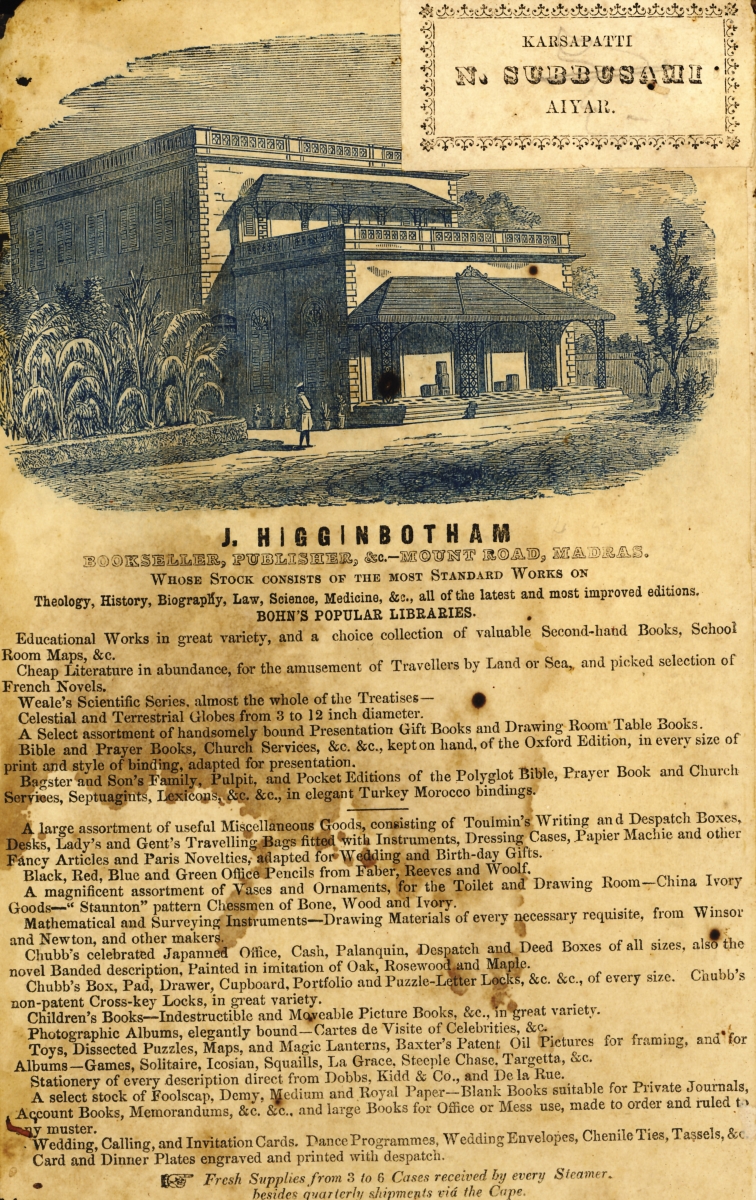 KARSAPATTI
N. SUBBUSAMI
AIYAR.
J. HIGGINBOTHAM
BOOKSELLER, PUBLISHER, &c.—MOUNT ROAD, MADRAS.
WHOSE STOCK CONSISTS OF THE MOST STANDARD WORKS ON
Theology, History, Biography, Law, Science, Medicine, &c., all of the latest and most improved editions.
BOHN'S POPULAR LIBRARIES.
Educational Works in great variety, and a choice collection of valuable Second-hand Books, School
Room Maps, &c.
Cheap Literature in abundance, for the amusement of Travellers by Land or Sea, and picked selection of
French Novels.
Weale's Scientific Series, almost the whole of the Treatises—
Celestial and Terrestrial Globes from 3 to 12 inch diameter.
A Select assortment of handsomely bound Presentation Gift Books and Drawing Room Table Books.
Bible and Prayer Books, Church Services, &c. &c., kept on hand, of the Oxford Edition, in every size of
print and style of binding, adapted for presentation.
Bagster and Son's Family, Pulpit, and Pocket Editions of the Polyglot Bible, Prayer Book and Church
Services, Septuagints, Lexicons, &c. &c., in elegant Turkey Morocco bindings.
A large assortment of useful Miscellaneous Goods, consisting of Toulmin's Writing and Despatch Boxes,
Desks, Lady's and Gent's Travelling Bags fitted with Instruments, Dressing Cases, Papier Machie and other
Fancy Articles and Paris Novelties, adapted for Wedding and Birth-day Gifts.
Black, Red, Blue and Green Office Pencils from Faber, Reeves and Woolf.
A magnificent assortment of Vases and Ornaments, for the Toilet and Drawing Room—China Ivory
Goods—“ Staunton” pattern Chessmen of Bone, Wood and Ivory.
Mathematical and Surveying Instruments—Drawing Materials of every necessary requisite, from Winsor
and Newton, and other makers.
Chubb's celebrated Japanned Office, Cash, Palanquin, Despatch and Deed Boxes of all sizes, also the
novel Banded description, Painted in imitation of Oak, Rosewood and Maple.
Chubb's Box, Pad, Drawer, Cupboard, Portfolio and Puzzle-Letter Locks, &c. &c., of every size. Chubb's
non-patent Cross-key Locks, in great variety.
Children's Books—Indestructible and Moveable Picture Books, &c., in great variety.
Photographic Albums, elegantly bound—Cartes de Visite of Celebrities, &c.
Toys, Dissected Puzzles, Maps, and Magic Lanterns, Baxter's Patent Oil Pictures for framing, and for
Albums—Games, Solitaire, Icosian, Squaills, La Grace, Steeple Chase, Targetta, &c.
Stationery of every description direct from Dobbs, Kidd & Co., and De la Rue.
A select stock of Foolscap, Demy, Medium and Royal Paper—Blank Books suitable for Private Journals,
Account Books, Memorandums, &c. &c., and large Books for Office or Mess use, made to order and ruled to
any muster.
Wedding, Calling, and Invitation Cards. Dance Programmes, Wedding Envelopes, Chenile Ties, Tassels, &c.
Card and Dinner Plates engraved and printed with despatch.
Fresh Supplies from 3 to 6 Cases received by every Steamer.
besides quarterly shipments viâ the Cape.